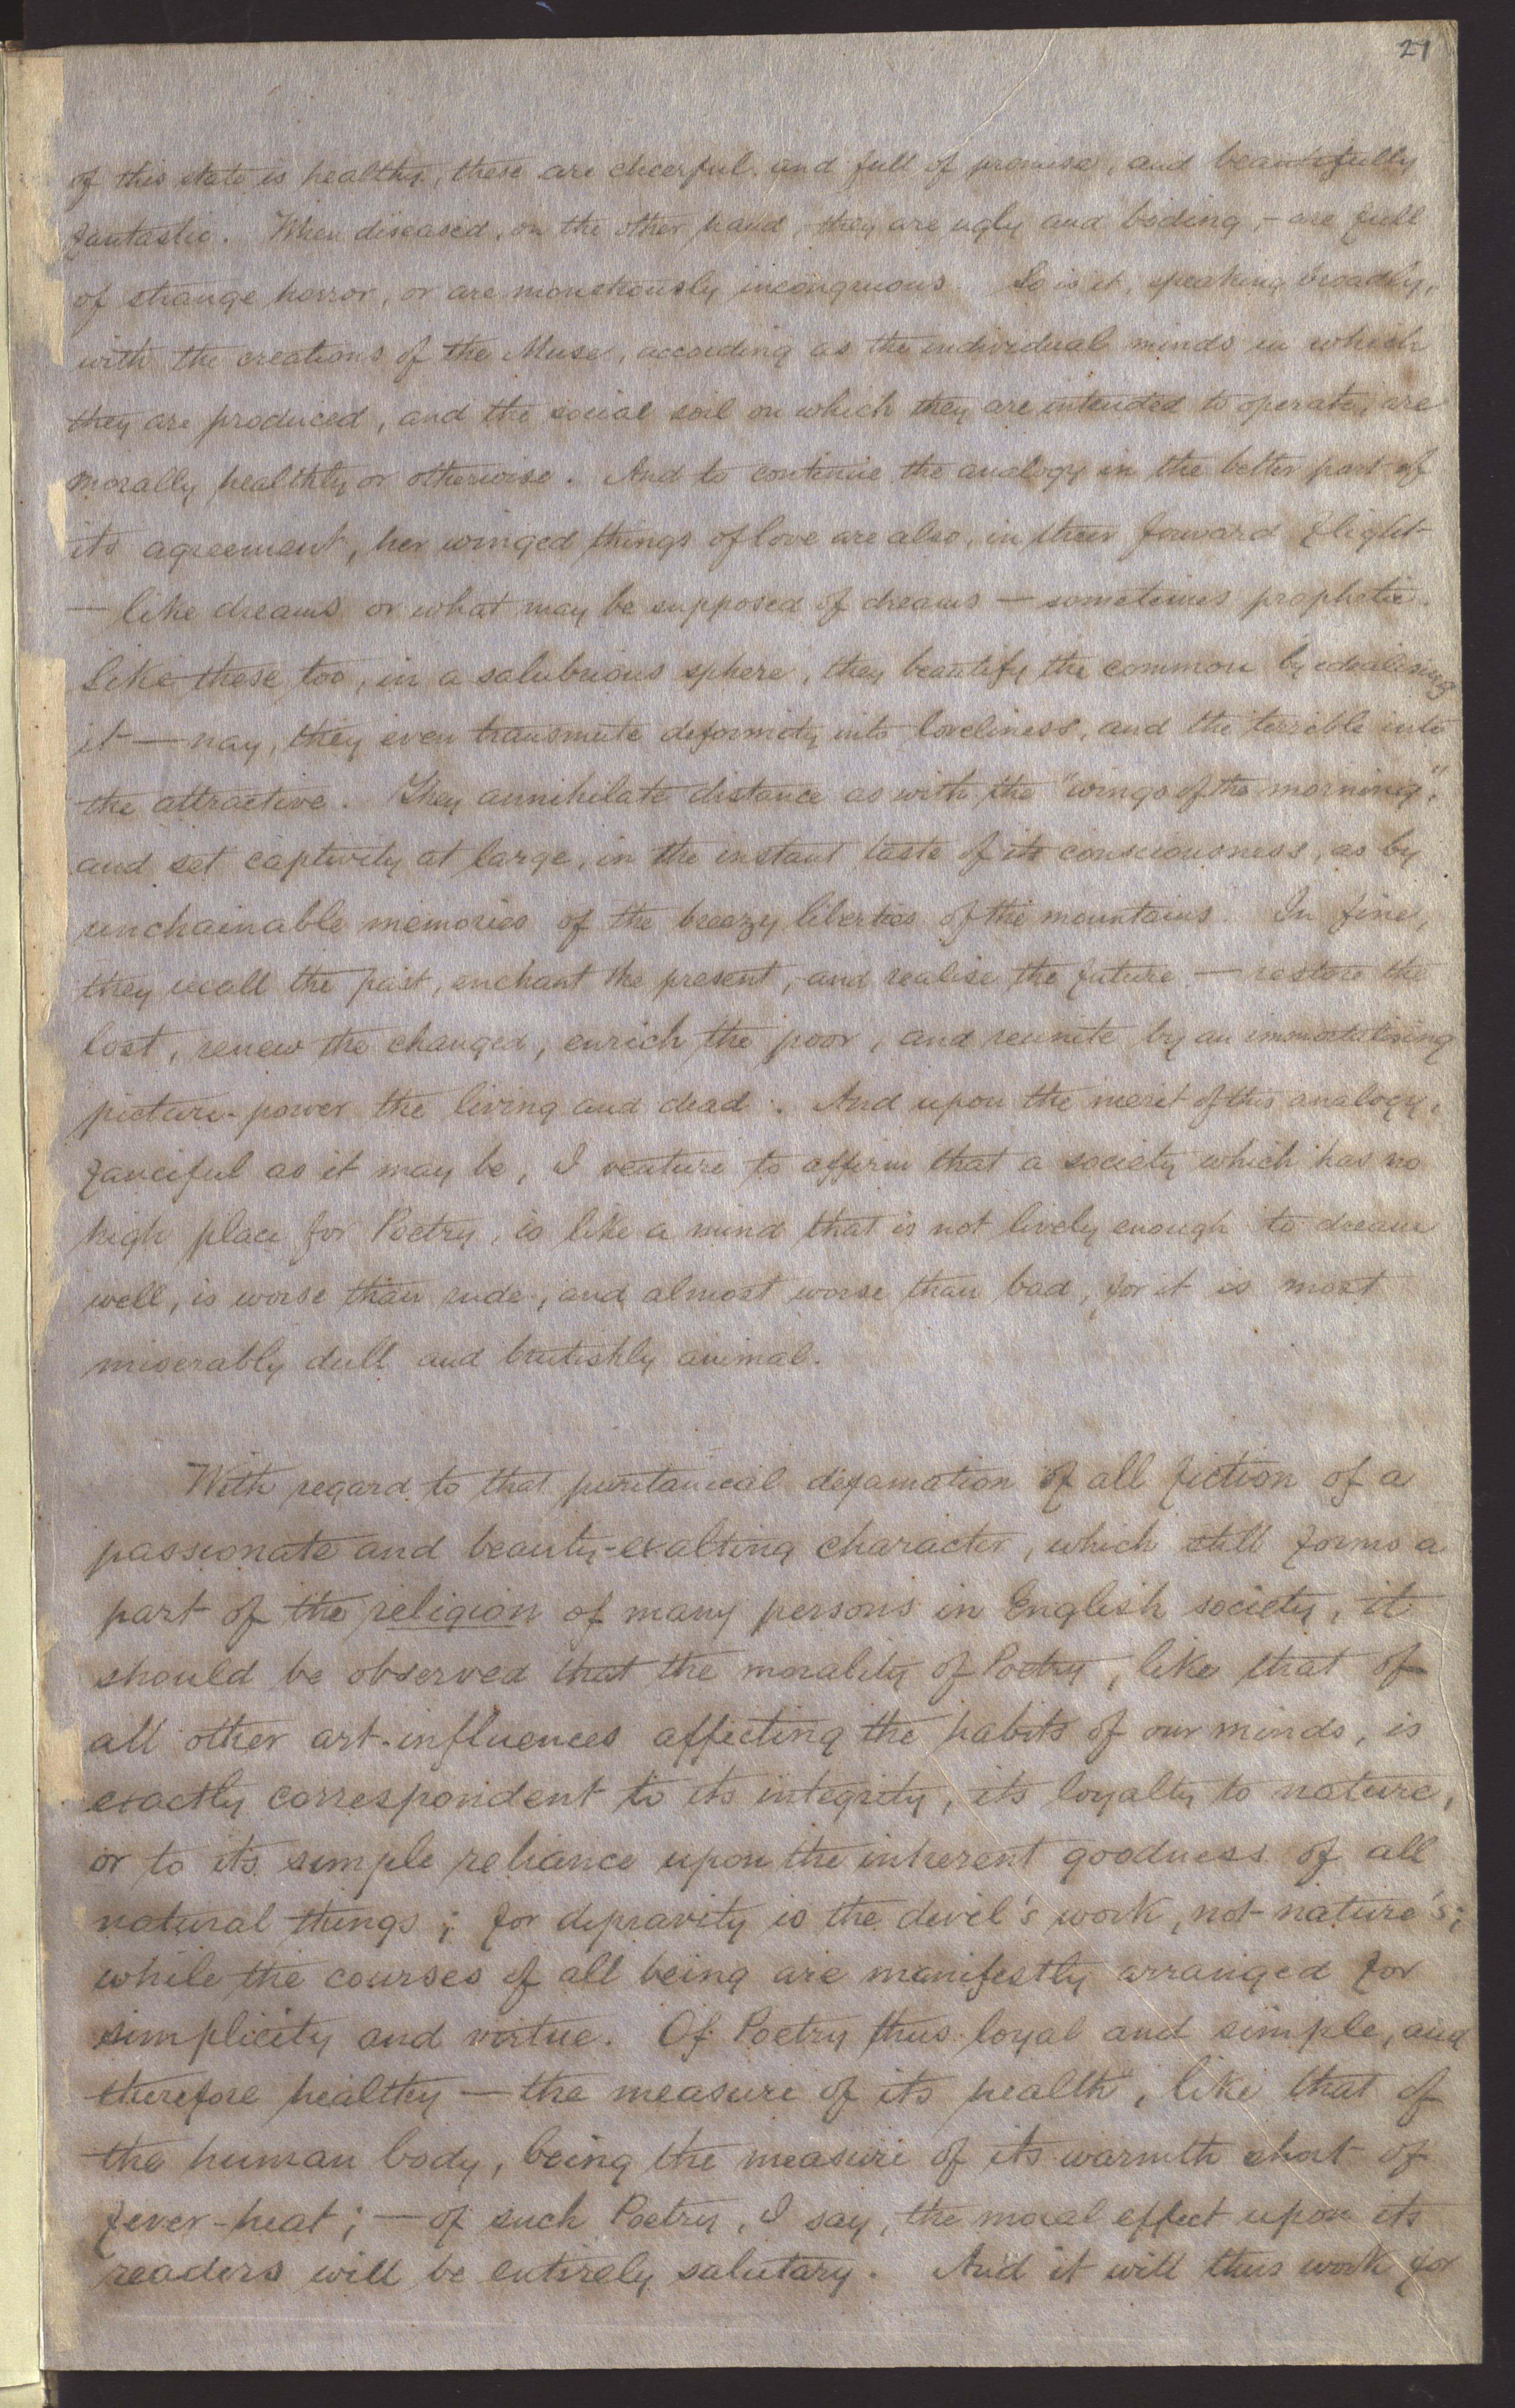 21
of this state is healthy, these are cheerful and full of promise, and beautifully
fantastic. When diseased, on the other hand, they are ugly and boding, – are full
of strange horror, or are monstrously incongruous. So is it, speaking broadly,
with the creations of the Muse, according as the individual minds in which
they are produced, and the social soil on which they are intended to operate, are
morally healthy or otherwise. And to continue the analogy in the better part of
its agreement, her winged things of love are also, in their forward flight
— like dreams or what may be supposed of dreams — sometimes prophetic.
Like these too, in a salubrious sphere, they beautify the common by idealising
it — nay, they even transmute deformity into loveliness, and the terrible into
the attractive. They annihilate distance as with the "wings of the morning",
and set captivity at large, in the instant taste of its consciousness, as by
unchainable memories of the breezy liberties of the mountains. In fine,
they recall the past, enchant the present, and realise the future — restore the
lost, renew the changed, enrich the poor, and reunite by an immortalising
picture-power the living and dead. And upon the merit of this analogy,
fanciful as it may be, I venture to affirm that a society which has no
high place for Poetry, is like a mind that is not lively enough to dream
well, is worse than rude, and almost worse than bad, for it is most
miserably dull and brutishly animal.
With regard to that puritanical defamation of all fiction of a
passionate and beauty-exalting character, which still forms a
part of the religion of many persons in English society, it
should be observed that the morality of Poetry, like that of
all other art-influences affecting the habits of our minds, is
exactly correspondent to its integrity, its loyalty to nature,
or to its simple reliance upon the inherent goodness of all
natural things; for depravity is the devil's work, not nature's;
while the courses of all being are manifestly arranged for
simplicity and virtue. Of Poetry thus loyal and simple, and
therefore healthy — the measure of its health, like that of
the human body, being the measure of its warmth short of
fever-heat; — of such Poetry, I say, the moral effect upon its
readers will be entirely salutary. And it will thus work for